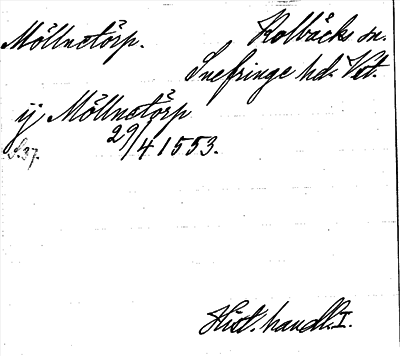 Möllnetorp.
Kolbäcks sn.
Snefringe hd. Vstl.
ij Möllnetorp
29/4 1553.
S. 37.
Hist. handl. I.